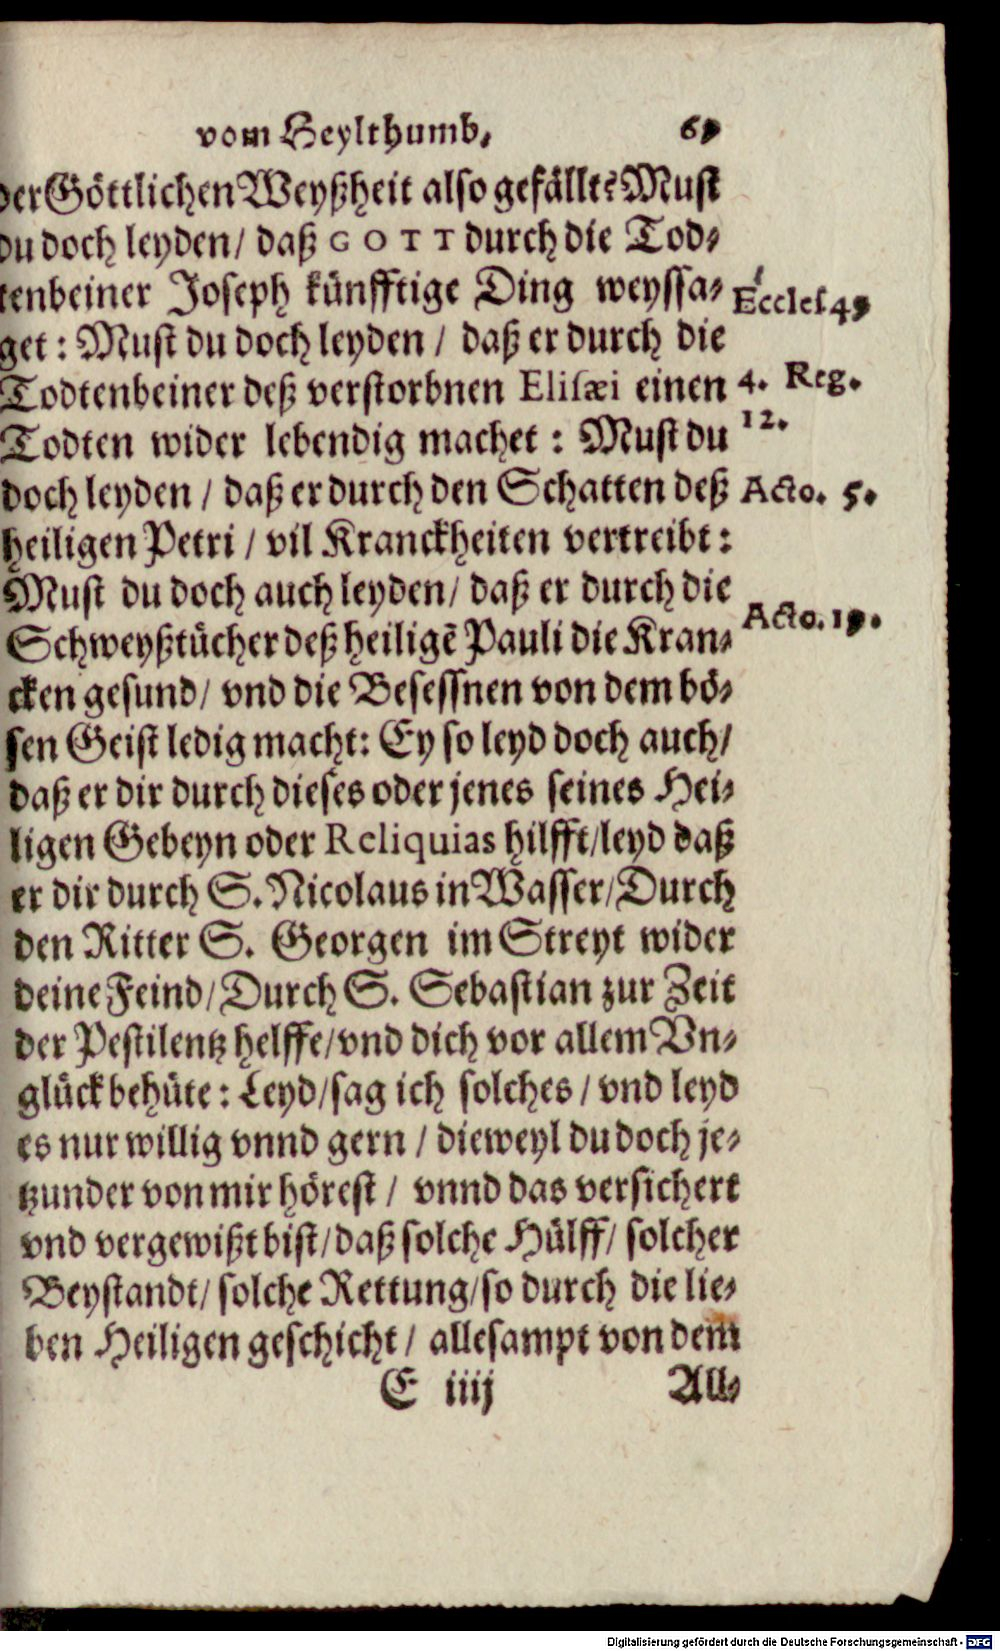 vom Heylthumb. 69
der Göttlichen Weyßheit also gefällt? Must
du doch leyden / daß GOTT durch die Tod-
tenbeiner Joseph künfftige Ding weyssa-
Eccles. 49
get : Must du doch leyden / daß er durch die
Todtenbeiner deß verstorbnen Elisæi einen
4. Reg.
12.
Todten wider lebendig machet : Must du
doch leyden / daß er durch den Schatten deß
Acto. 5.
heiligen Petri / vil Kranckheiten vertreibt :
Must du doch auch leyden / daß er durch die
Schweyßtücher deß heiligē Pauli die Kran-
Acto. 19.
cken gesund / vnd die Besessnen von dem bö-
sen Geist ledig macht : Ey so leyd doch auch /
daß er dir durch dieses oder jenes seines Hei-
ligen Gebeyn oder Reliquias hilfft / leyd daß
er dir durch S. Nicolaus in Wasser / Durch
den Ritter S. Georgen im Streyt wider
deine Feind / Durch S. Sebastian zur Zeit
der Pestilentz helffe / vnd dich vor allem Vn-
glück behüte : Leyd / sag ich solches / vnd leyd
es nur willig vnnd gern / dieweyl du doch je-
tzunder von mir hörest / vnnd das versichert
vnd vergewißt bist / daß solche Hülff / solcher
Beystandt / solche Rettung / so durch die lie-
ben Heiligen geschicht / allesampt von dem
E iiij All-
Digitalisierung gefördert durch die Deutsche Forschungsgemeinschaft - DFG